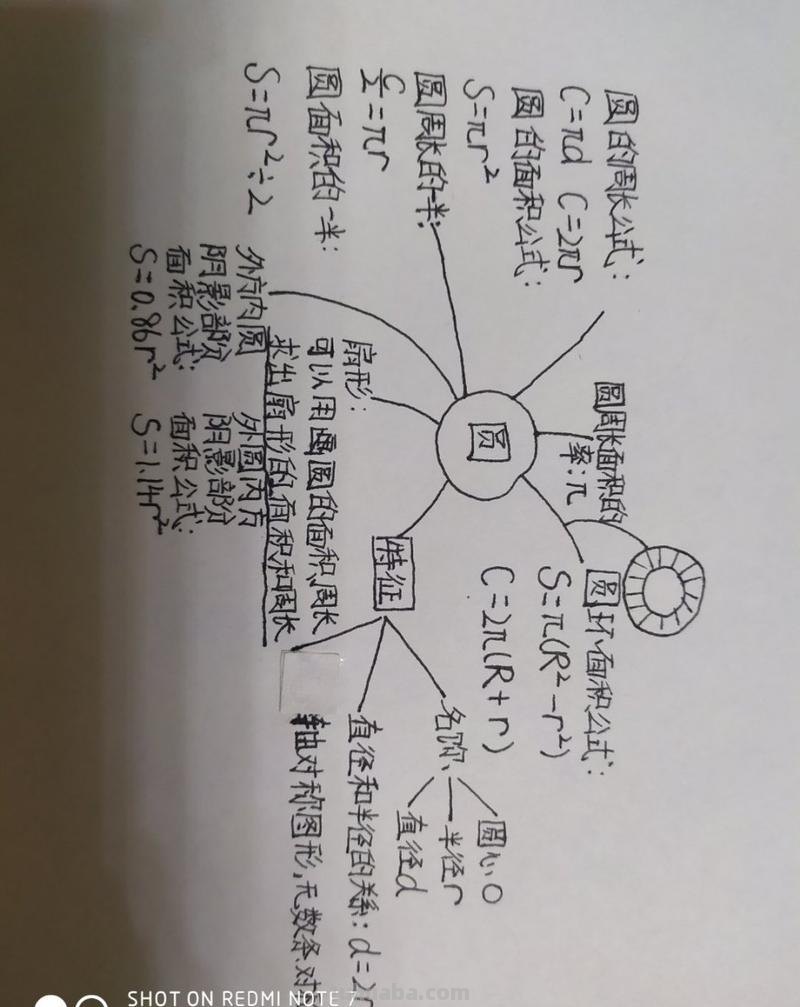 圆的周长公式：
C=πd C=2πr
圆的面积公式：
S=πr²
圆周长的一半：
C/2=πr
圆面积的一半：
S=πr²÷2
圆周长面积的
率：π
圆
圆环面积公式：
S=π(R²-r²)
C=2π(R+r)
扇形：
可以用圆的面积，周长
求出扇形的面积和周长
外方内圆
阴影部分
面积公式：
S=0.86r²
外圆内方
阴影部分
面积公式：
S=1.14r²
特征
名称
圆心O
半径r
直径d
直径和半径的关系：d=2r
轴对称图形，无数条对
SHOT ON REDMI NOTE 7